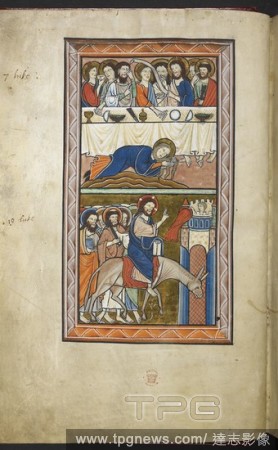 7 luke
19 luke
TPG
www.tpgnews.com / 達志影像